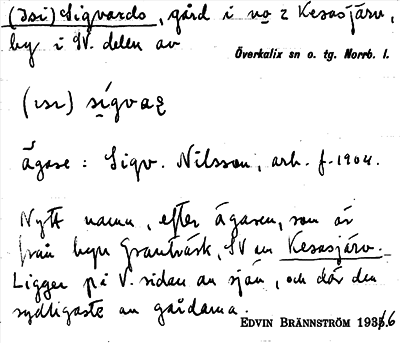 (Isi) Sigvards, gård i no 2 Kesasjärv,
by i SV. delen av
Överkalix sn o. tg. Norrb. l.
(ısı) sígvaʐ
Ägare: Sigv. Nilsson, arb. f. 1904.
Nytt namn, efter ägaren, som är
från byn Granträsk, SV om Kesasjärv.
Ligger på V. sidan av sjön, och där den
sydligaste av gårdarna.
EDVIN BRÄNNSTRÖM 1936